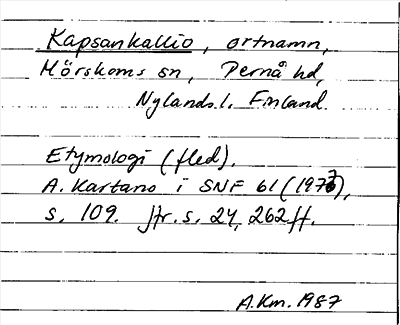 Kapsankallio, ortnamn,
Mörskoms sn, Pernå hd,
Nylands l. Finland.
Etymologi (fled).
A. Kartano i SNF 61 (1977),
s. 109. Jfr. s. 24, 262 ff.
A.Km. 1987